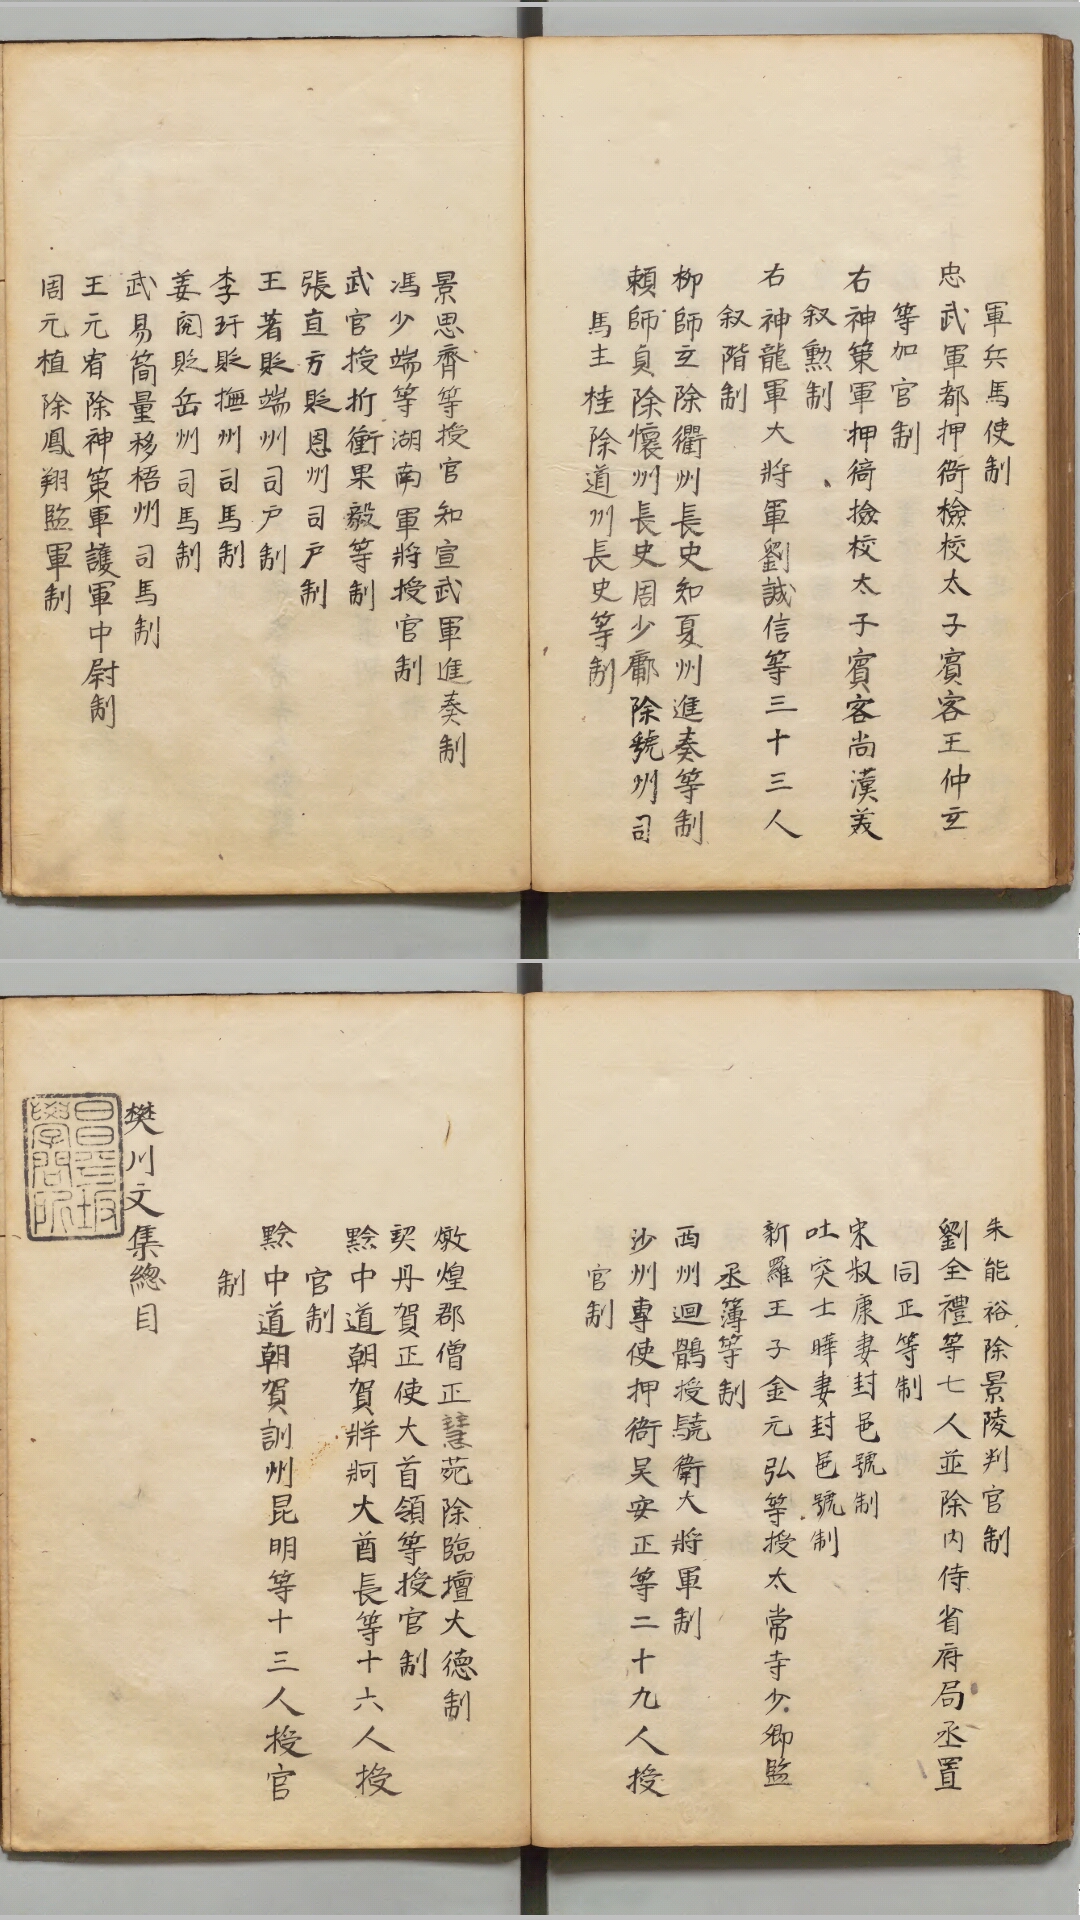 軍兵馬使制
忠武軍都押衙檢校太子賓客王仲玄
等加官制
右神策軍押衙撿校太子賓客尚漢美
叙勲制
右神龍軍大將軍劉誠信等三十三人
叙階制
柳師玄除衢州長史知夏州進奏等制
賴師貞除懷州長史周少鄘除虢州司
馬王桂除道州長史等制
景思齊等授官知宣武軍進奏制
馮少端等湖南軍將授官制
武官授折衝果毅等制
張直方貶恩州司户制
王著貶端州司户制
李玗貶撫州司馬制
姜閱貶岳州司馬制
武易簡量移梧州司馬制
王元宥除神策軍護軍中尉制
周元植除鳳翔監軍制
朱能裕除景陵判官制
劉全禮等七人並除内侍省府局丞置
同正等制
宋叔康妻封邑號制
吐突士曄妻封邑號制
新羅王子金元弘等授太常寺少卿監
丞簿等制
西州迴鶻授驍衛大將軍制
沙州專使押衙吴安正等二十九人授
官制
燉煌郡僧正慧菀除臨壇大德制
契丹賀正使大首領等授官制
黔中道朝賀牂牁大酋長等十六人授
官制
黔中道朝賀訓州昆明等十三人授官
制
樊川文集總目
昌平坂
學問所